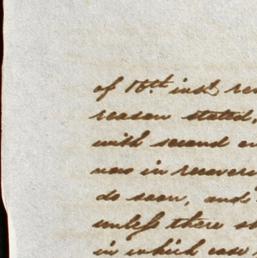 of 16th inst re
reason stated,
with second en
now in recover
do soon, and
unless there s
in which case